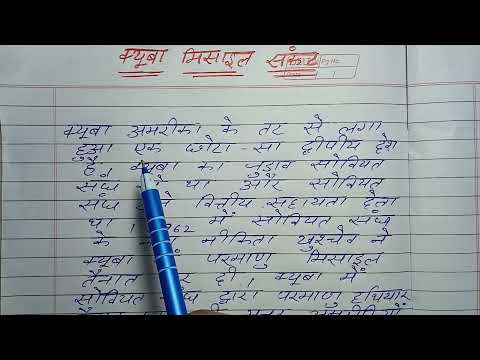 क्यूबा मिसाइल संकट
Pg No.
1
क्यूबा अमरीका के तट से लगा
हुआ एक छोटा-सा द्वीपीय देश
है, क्यूबा का जुड़ाव सोवियत
संघ था और सोवियत
संघ वित्तीय सहायता देता
था। में सोवियत संघ
के नीकिता ख्रुश्चेव ने
क्यूबा परमाणु मिसाइल
तैनात दी, क्यूबा में
सोवियत द्वारा परमाणु हथियार